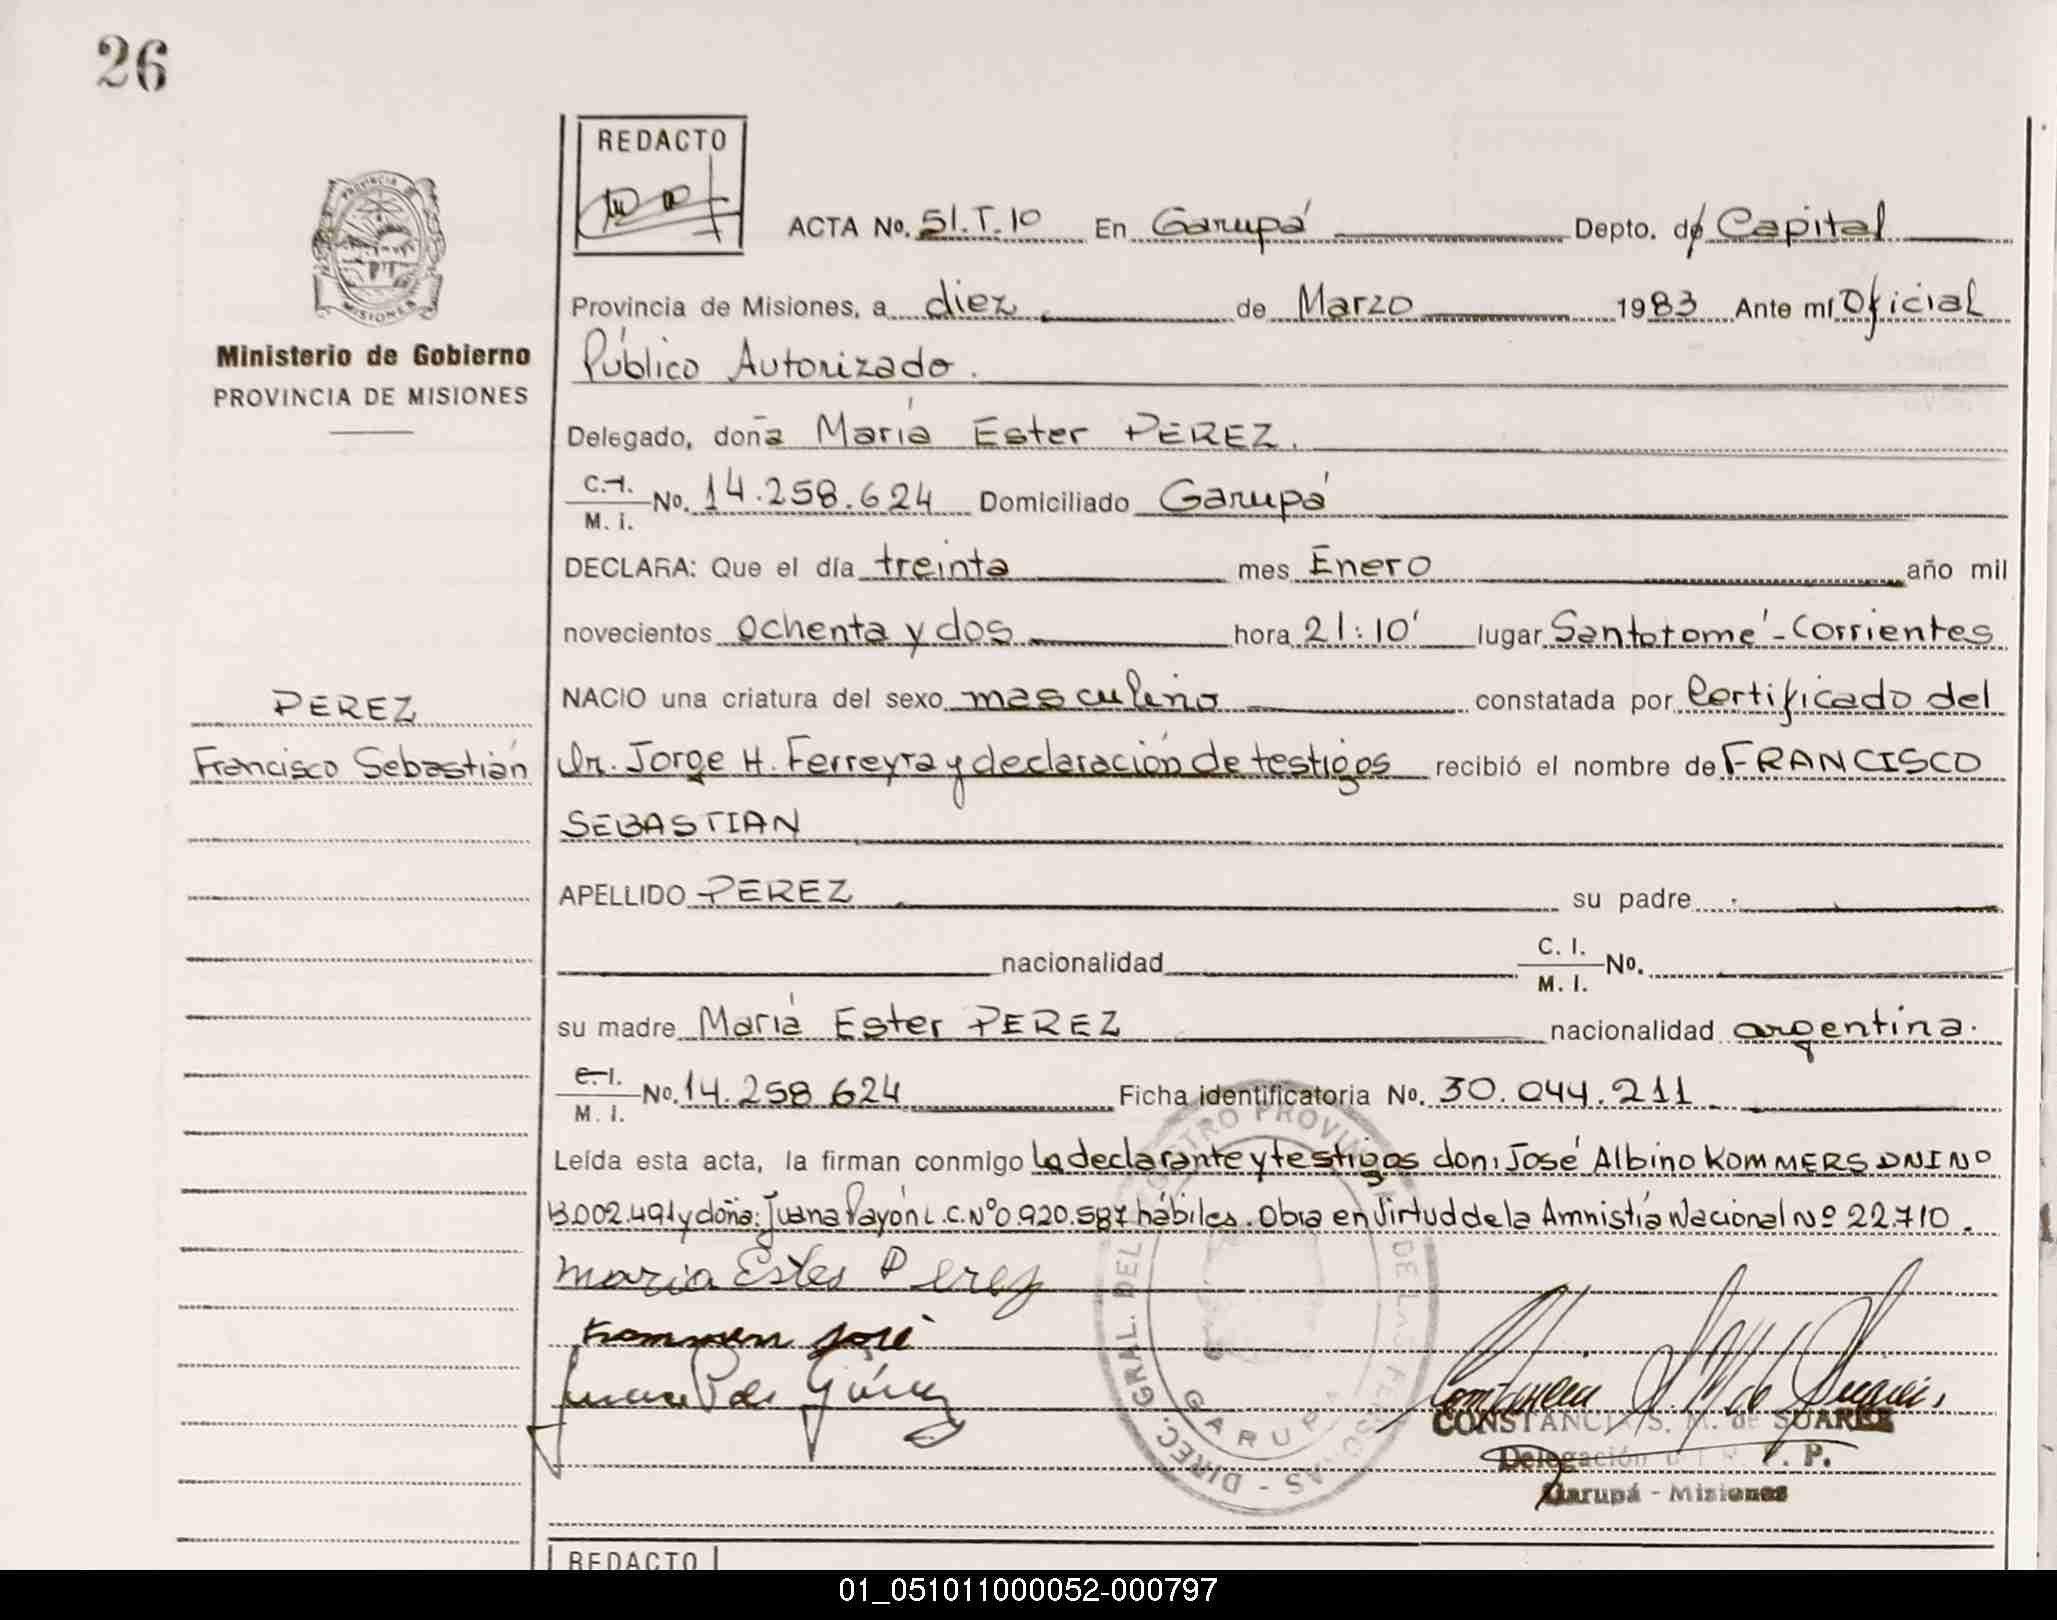 26
REDACTO
ACTA No. 51.T.10 En Garupá Depto. de Capital
Provincia de Misiones, a diez de Marzo 1983 Ante mí Oficial
Público Autorizado.
Ministerio de Gobierno
PROVINCIA DE MISIONES
Delegado, doña María Ester PEREZ.
C.I. M. I. No. 14.258.624 Domiciliado Garupá
DECLARA: Que el día treinta mes Enero año mil
novecientos ochenta y dos hora 21:10' lugar Santotomé - Corrientes
PEREZ
NACIO una criatura del sexo masculino constatada por Certificado del
Francisco Sebastián
Dr. Jorge H. Ferreyra y declaración de testigos recibió el nombre de FRANCISCO
SEBASTIAN
APELLIDO PEREZ su padre
nacionalidad C. I. M. I. No.
su madre María Ester PEREZ nacionalidad argentina.
C.I. M. I. No. 14.258 624 Ficha identificatoria No. 30.044.211
Leída esta acta, la firman conmigo la declarante y testigos don: José Albino KOMMERS DNI Nº
13.002.491 y doña: Juana Payón L.C. Nº 0.920.587 hábiles. Obra en Virtud de la Amnistía Nacional Nº 22.710.
Maria Ester Perez
Kommers José
DIREC. GRAL. DEL REGISTRO PROVINCIAL DE LAS PERSONAS - GARUPA
CONSTANCIA S. M. de SUAREZ
Delegación del R. P. P.
Garupá - Misiones
REDACTO
01_051011000052-000797